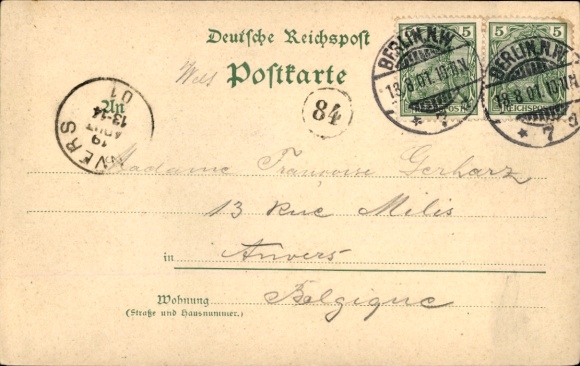 Deutsche Reichspost
Postkarte
5 5
REICHSPOST
BERLIN, N.W.
18.8.01.10-11N.
* 7 d
BERLIN, N.W.
18.8.01.10-11N.
* 7 d
84
ANVERS
19
AOUT
13-14
01
An
Madame Francoise Gerharz
13 Rue Milis
in Anvers
Wohnung Belgique
(Straße und Hausnummer.)